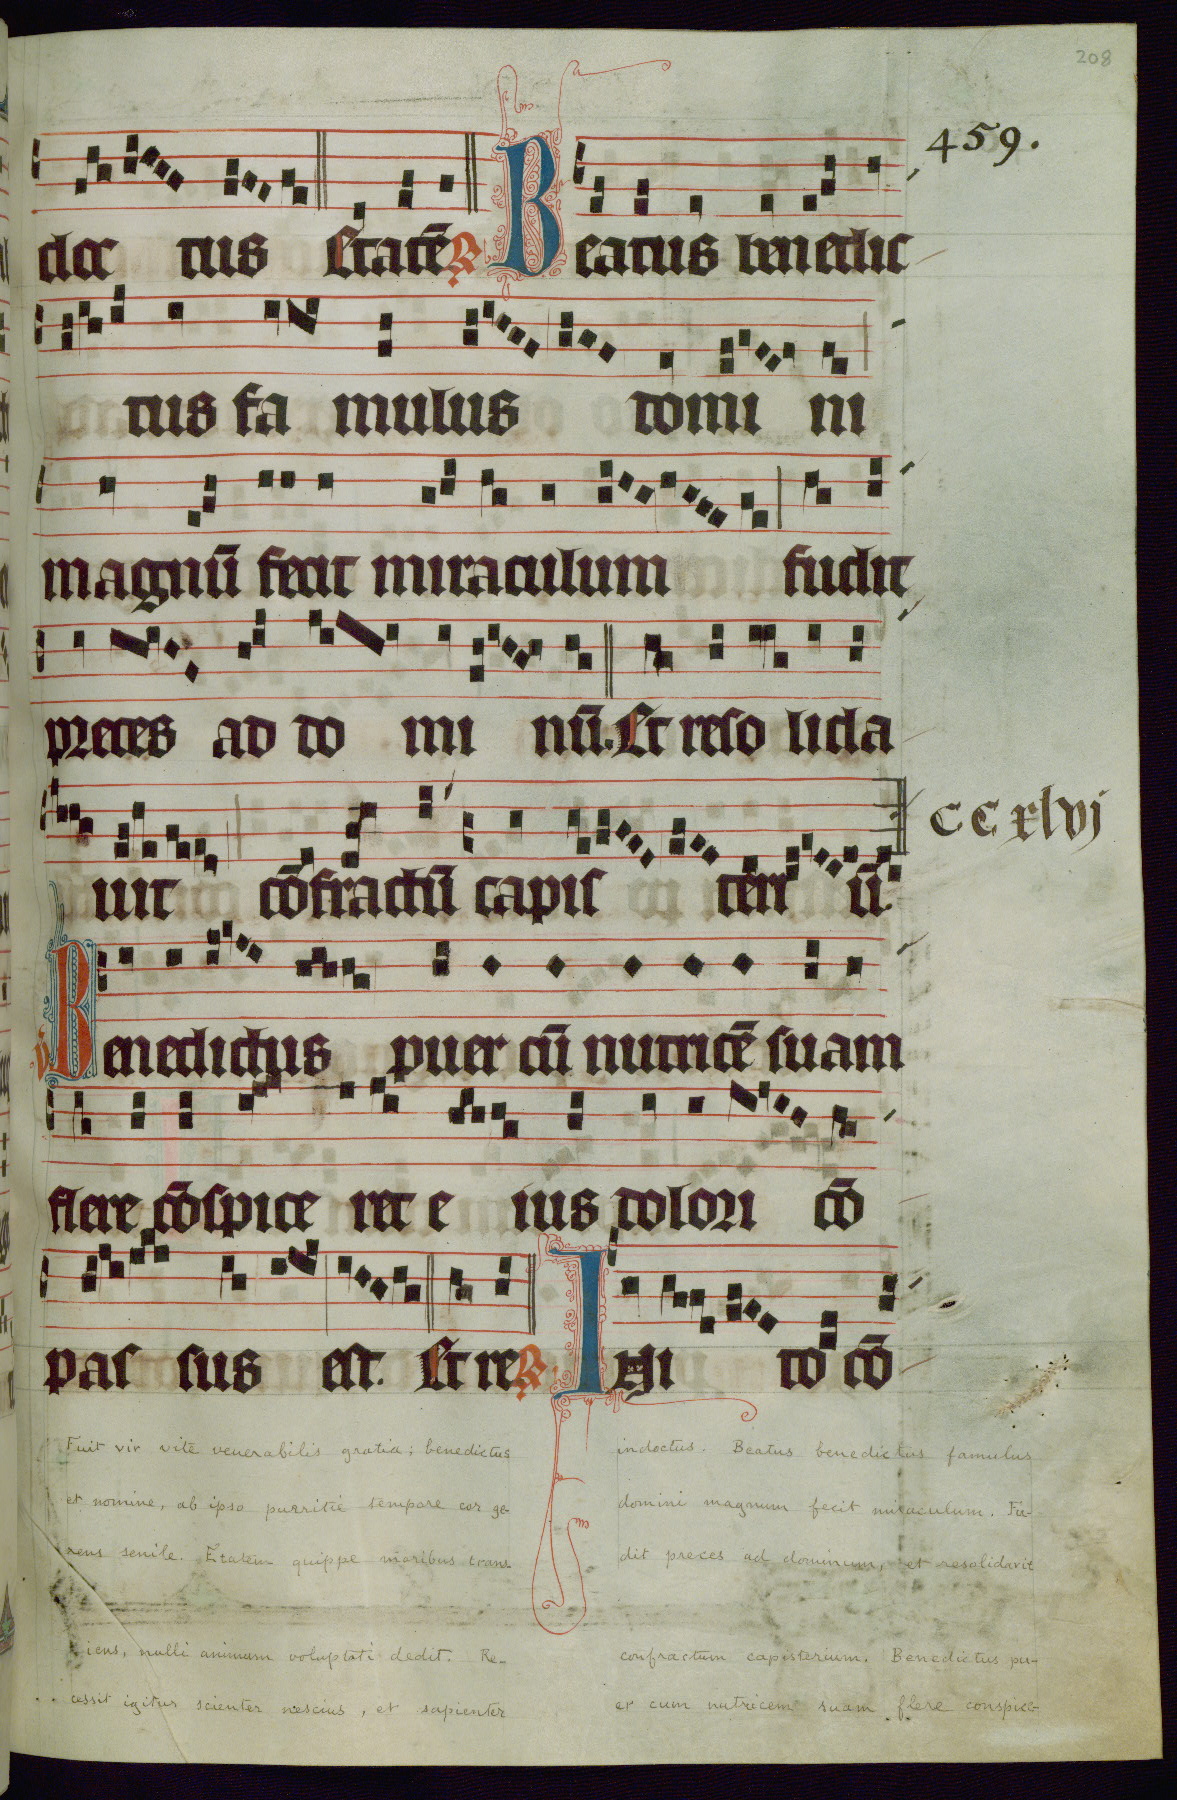 208
459.
doc tus Etatē R Beatus benedic
tus fa mulus domi ni
magnū fecit miraculum fudit
preces ad do mi nū. Et reso lida
CCxlvj
uit cōfractū capis teri ū.
V Benedictus puer cū nutricē suam
flere cōspice ret e ius dolori cō
pas sus est. Et re R Igi to cō
Fuit vir vite venerabilis gratia; benedictus
et nomine, ab ipso pueritie tempore cor ge-
rens senile. Etatem quippe moribus trans-
iens, nulli animum voluptati dedit. Re-
cessit igitur scienter nescius, et sapienter
indoctus. Beatus benedictus famulus
domini magnum fecit miraculum. Fu-
dit preces ad dominum, et resolidavit
confractum capisterium. Benedictus pu-
er cum nutricem suam flere conspice-